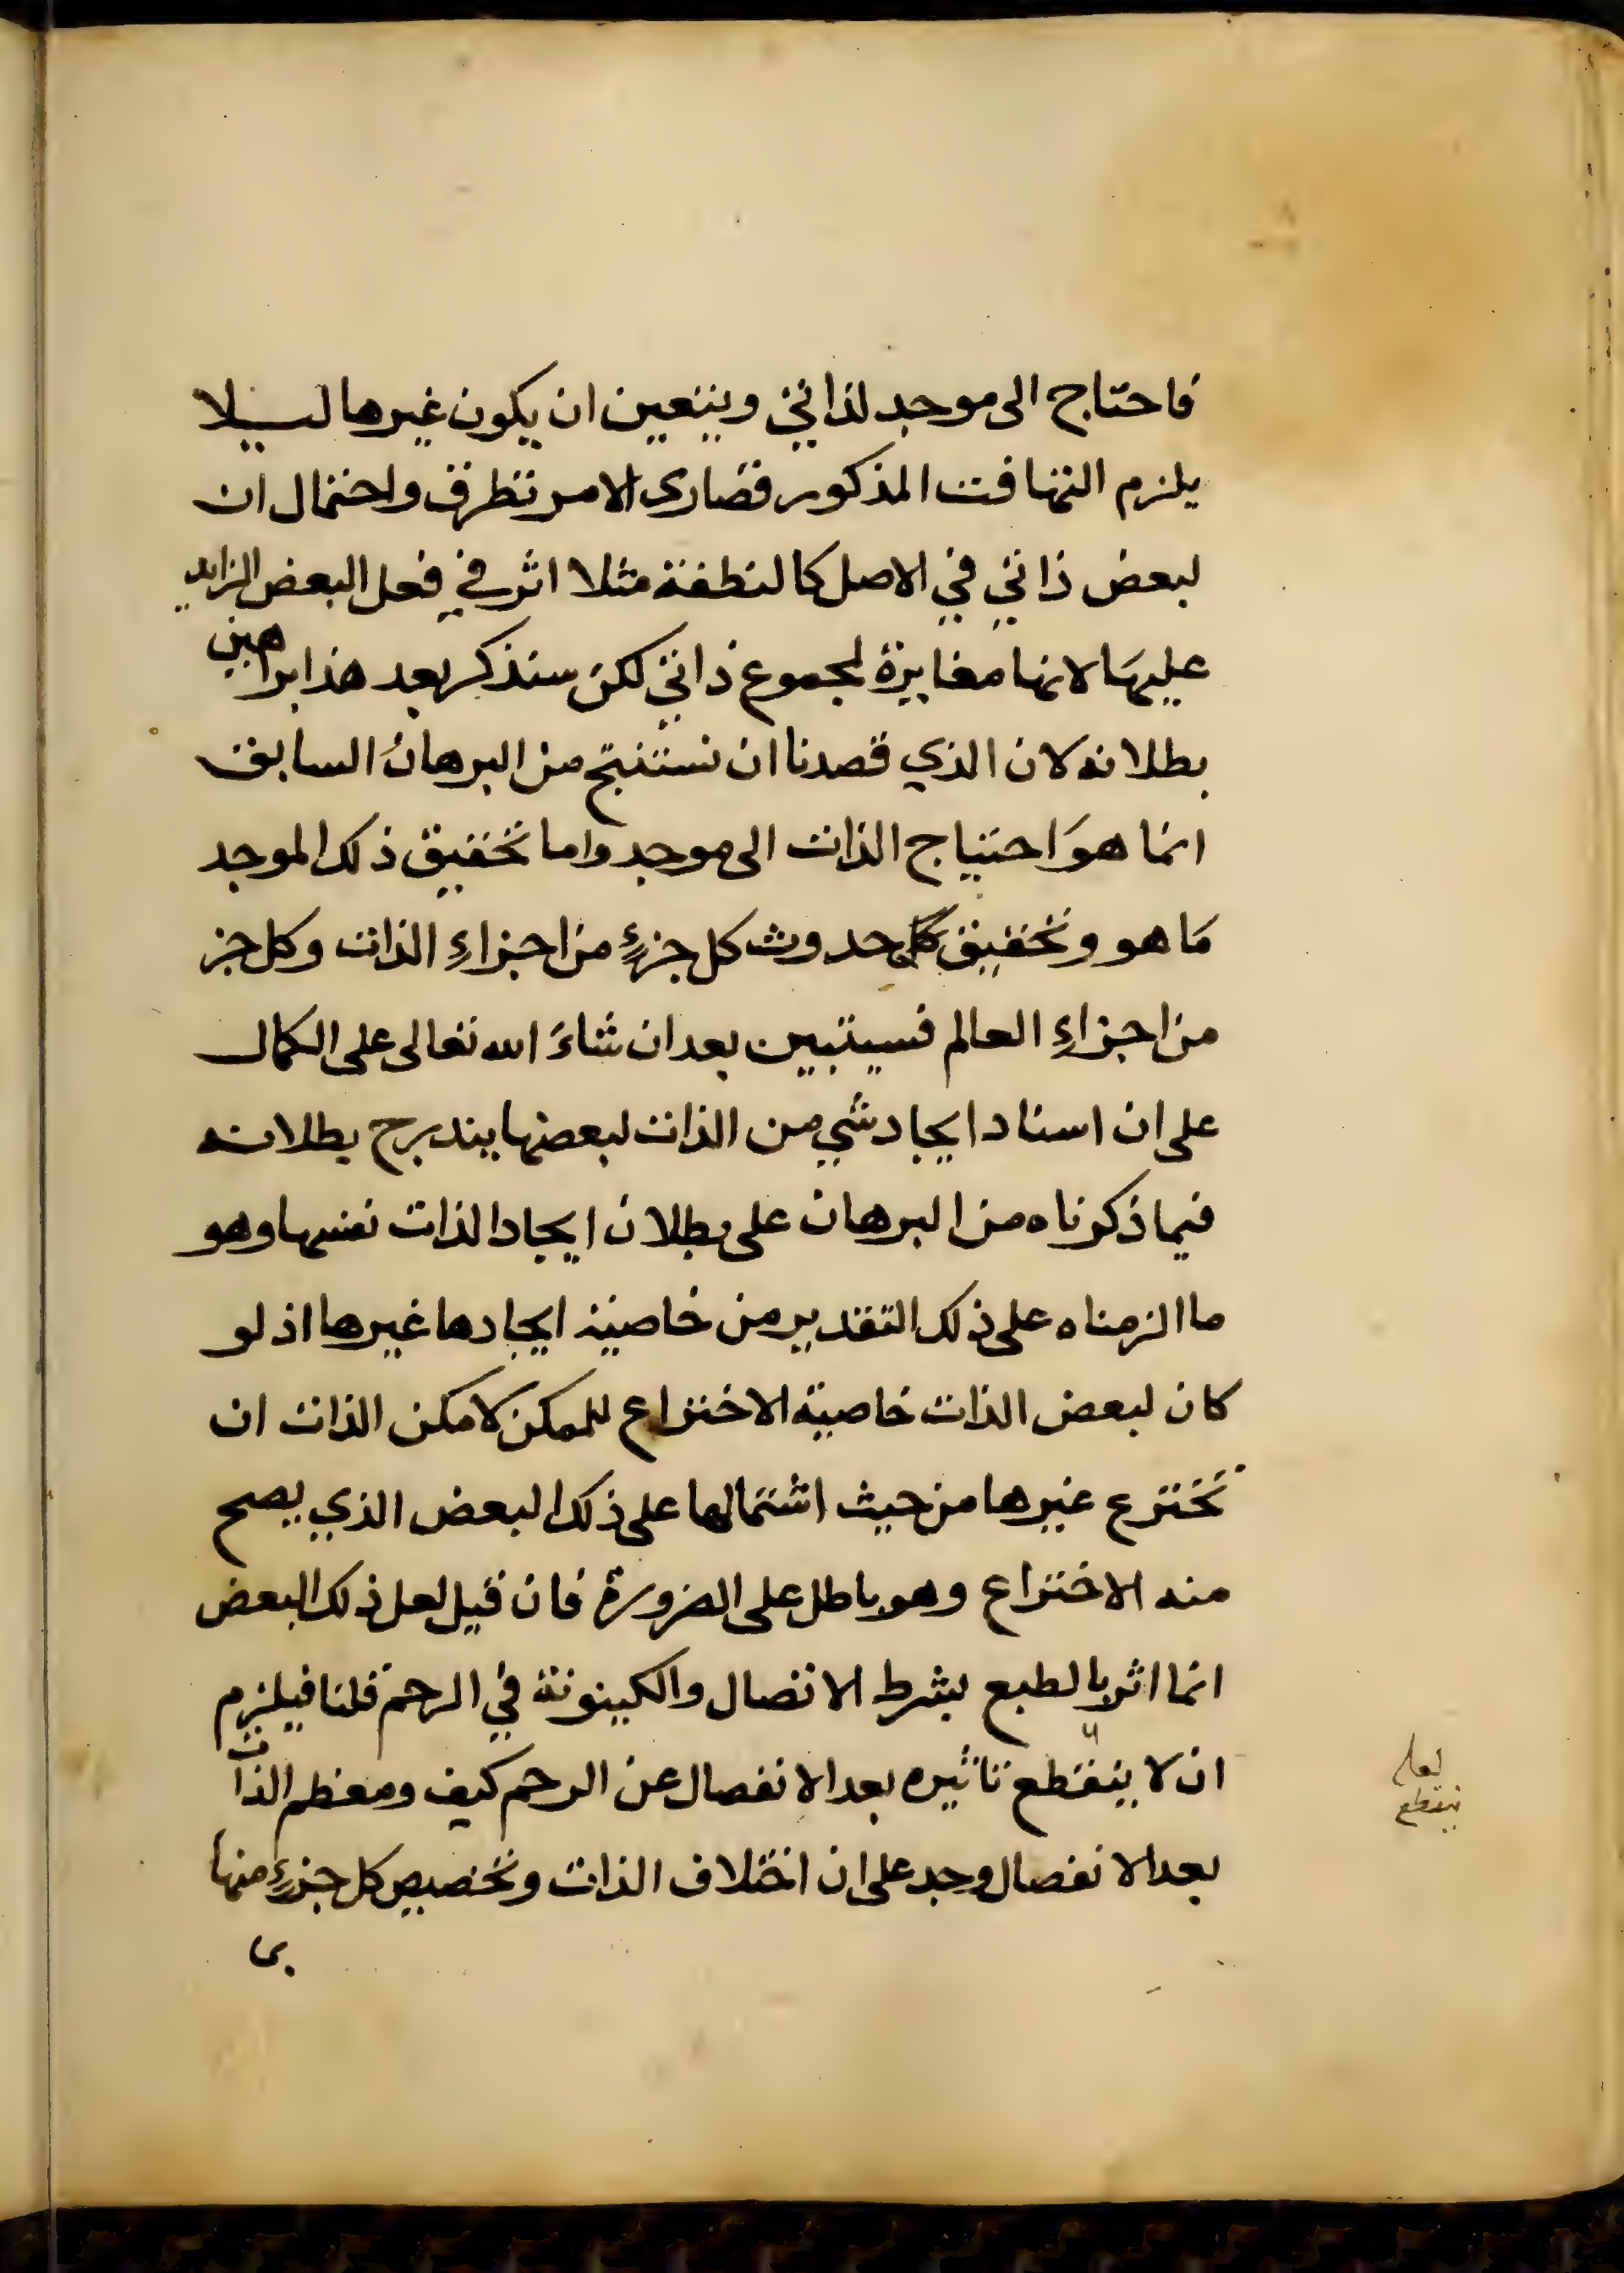 فاحتاج الى موجد لذاتي ويتعين ان يكون غيرها ليلا
يلزم التهافت المذكور فصارى الامر تطرق واحتمال ان
لبعض ذاتي في الاصل كالنطفة مثلا اثر في فعل البعض الزايد
عليها لانها مغايرة لمجموع ذاتي لكن سنذكر بعد هذا براهين
بطلانه لان الذي قصدنا ان نستنتج من البرهان السابق
انما هو احتياج الذات الى موجد واما تحقيق ذلك الموجد
ما هو وتحقيق حدوث كل جزءٍ من اجزاءِ الذات وكل جز
من اجزاءِ العالم فسيتبين بعد ان شاءَ الله تعالى على الكمال
على ان اسناد ايجاد شي من الذات لبعضها يندرج بطلانه
فيما ذكرناه من البرهان على بطلان ايجاد الذات نفسها وهو
ما الزمناه على ذلك التقدير من خاصية ايجادها غيرها اذ لو
كان لبعض الذات خاصية الاختراع للممكن لامكن الذات ان
تخترع غيرها من حيث اشتمالها على ذلك البعض الذي يصح
منه الاختراع وهو باطل على الضرورة فان قيل لعل ذلك البعض
انما اثر بالطبع بشرط الاتصال والكينونة في الرحم قلنا فيلزم
ان لا ينقطع تاثيره بعد الانفصال عن الرحم كيف ومعظم الذات
بعد الانفصال وجد على ان اختلاف الذات وتخصيص كل جزءٍ منها
لعله
ينقطع